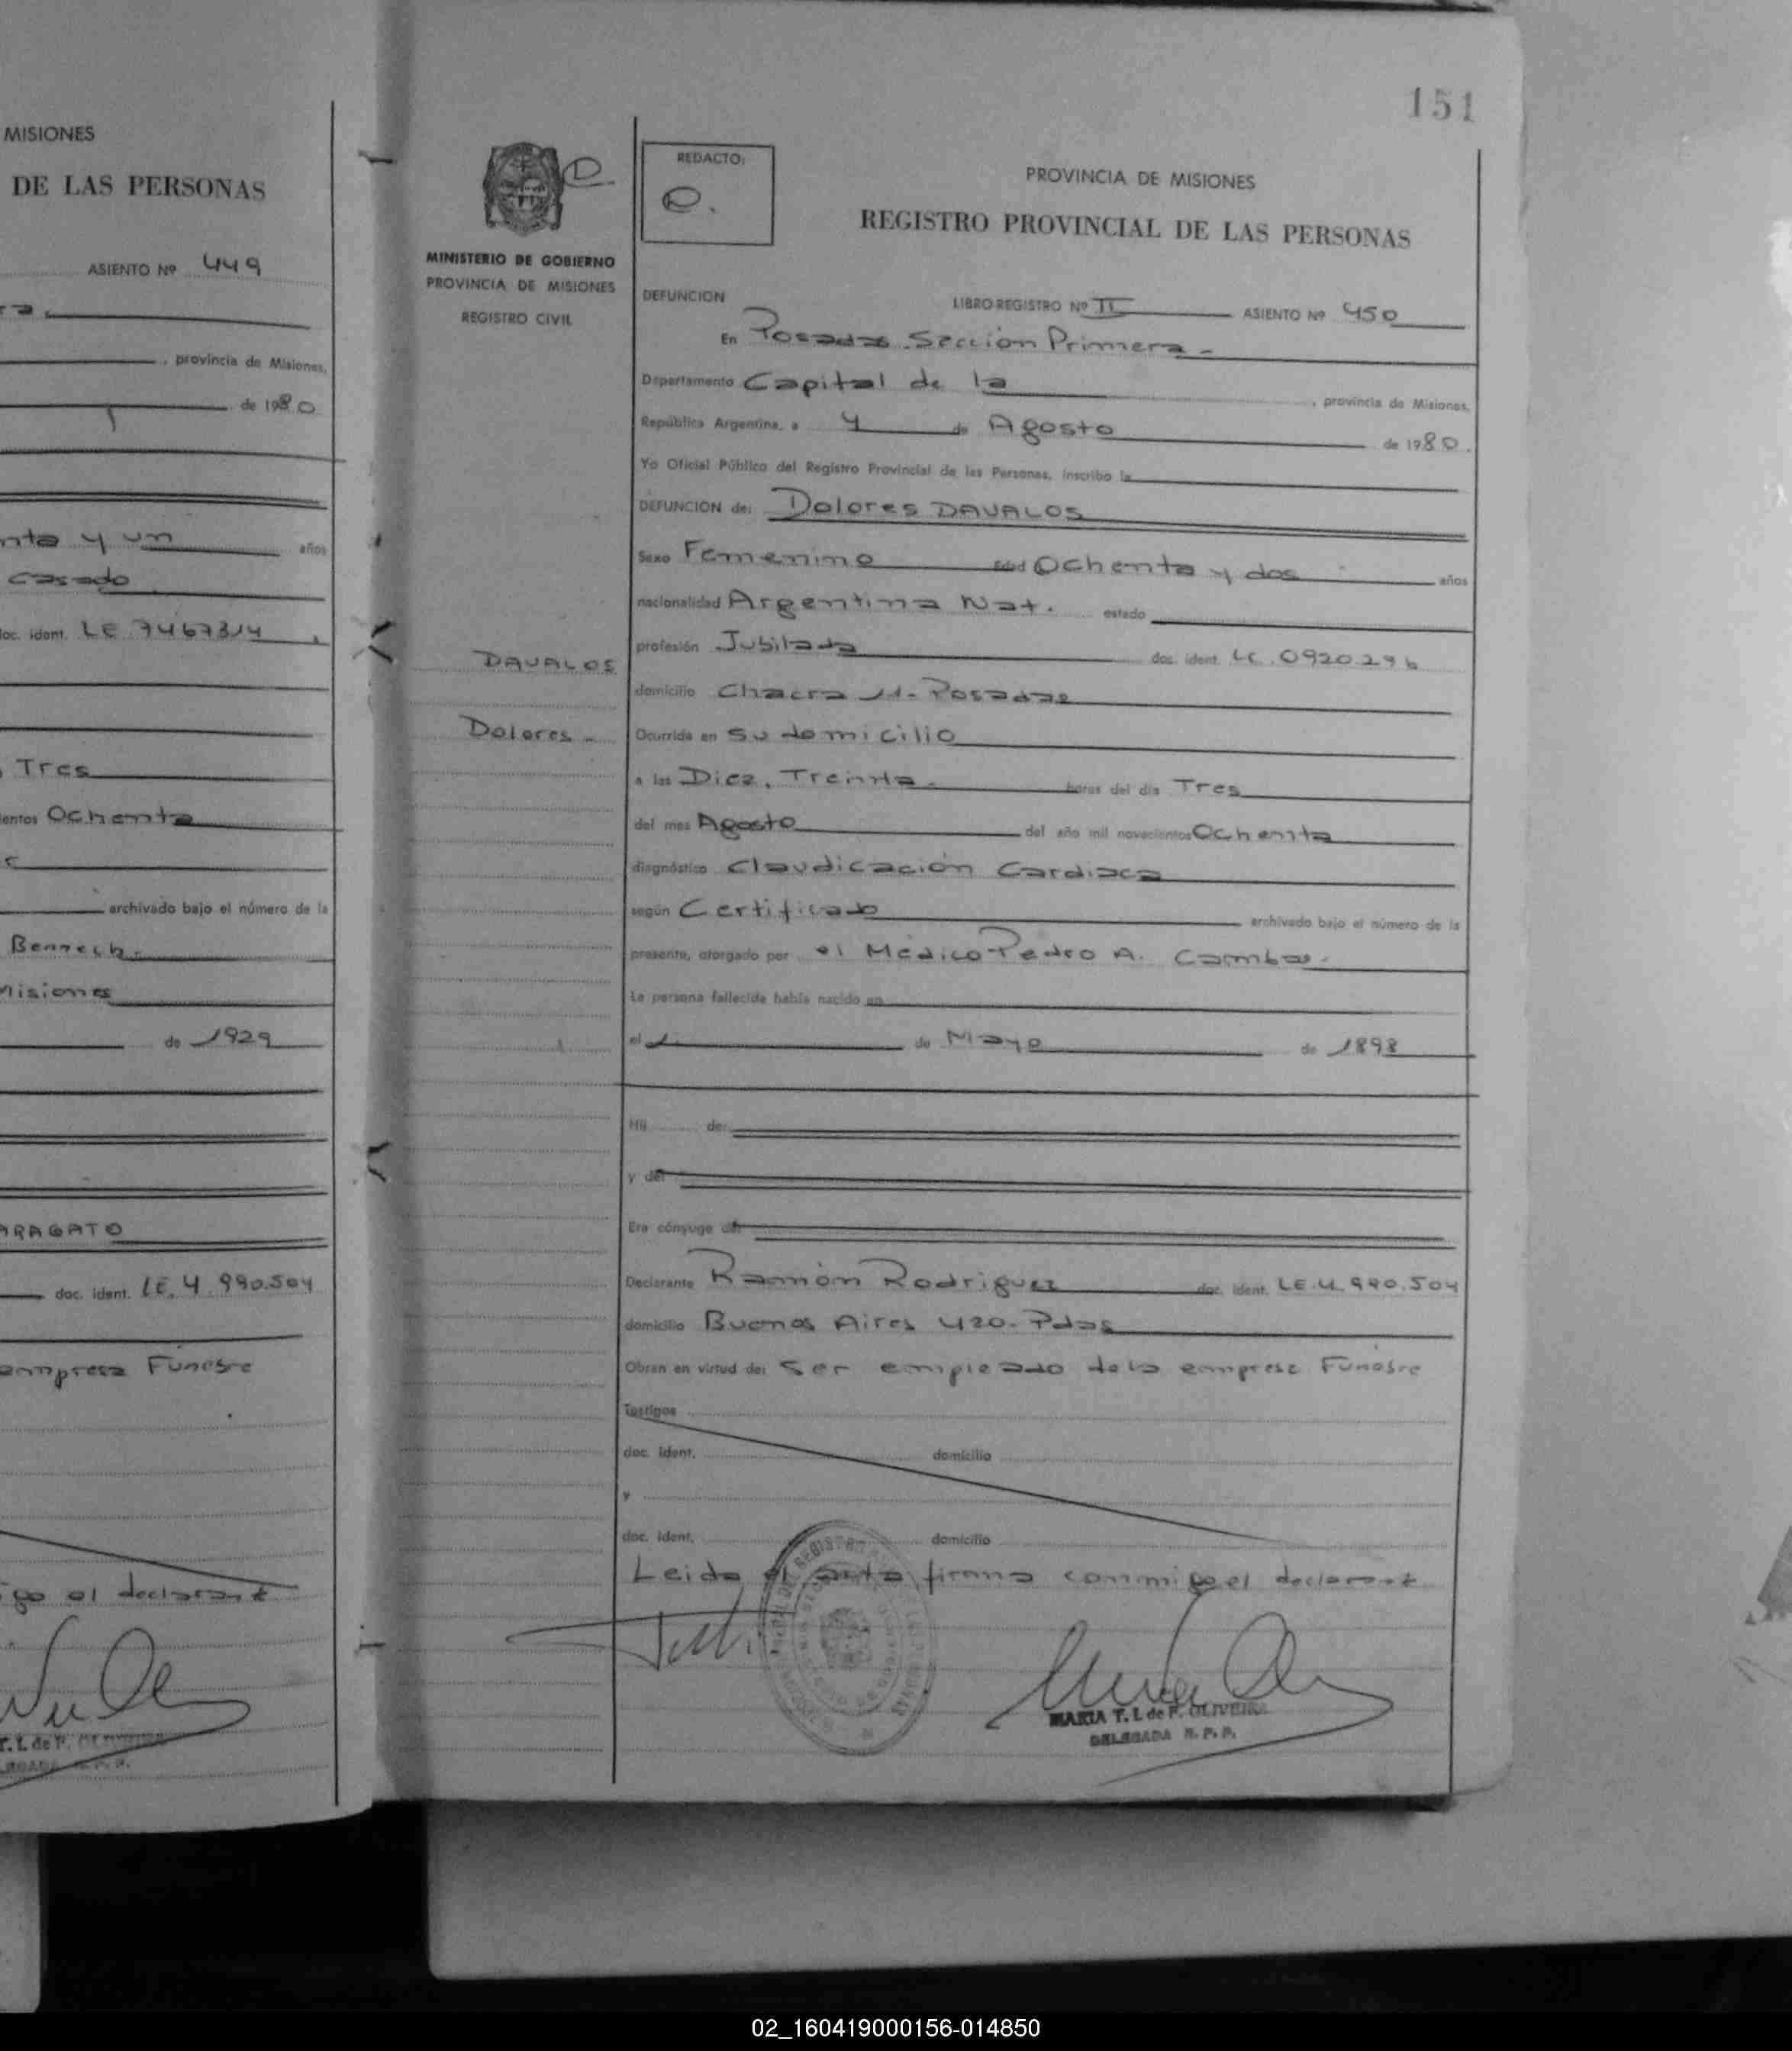 MISIONES
DE LAS PERSONAS
ASIENTO Nº 449
provincia de Misiones,
de 1980
y un años
casado
doc. ident. LE 7467314
Tres
Ochenta
archivado bajo el número de la
Misiones
de 1929
ARAGATO
doc. ident. LE. 4.990.504
empresa Funebre
el declarant
151
MINISTERIO DE GOBIERNO
PROVINCIA DE MISIONES
REGISTRO CIVIL
DAVALOS
Dolores -
REDACTO:
PROVINCIA DE MISIONES
REGISTRO PROVINCIAL DE LAS PERSONAS
DEFUNCION LIBRO REGISTRO Nº II ASIENTO Nº 450
En Posadas Sección Primera -
Departamento Capital de la , provincia de Misiones,
República Argentina, a 4 de Agosto de 1980.
Yo Oficial Público del Registro Provincial de las Personas, inscribo la
DEFUNCION de: Dolores DAVALOS
Sexo Femenino Edad Ochenta y dos años
nacionalidad Argentina Nat. estado
profesión Jubilada doc. ident. LC. 0920296
domicilio Chacra 11- Posadas
Ocurrida en su domicilio
a las Diez, Treinta - horas del día Tres
del mes Agosto del año mil novecientos Ochenta
diagnóstico Claudicación Cardiaca
según Certificado archivado bajo el número de la
presente, otorgado por el Médico Pedro A.
La persona fallecida había nacido en
el 1 de Mayo de 1898
Hij de:
y de:
Era cónyuge de:
Declarante Ramón Rodriguez doc. ident. LE. 4.990.504
domicilio Buenos Aires 420- Pdas
Obran en virtud de: Ser empleado de la empresa Funebre
Testigos
doc. ident. domicilio
y
doc. ident. domicilio
Leida el acta firma conmigo el declarant
MARIA T. I. de P. OLIVEIRA
DELEGADA R. P. P.
02_160419000156-014850